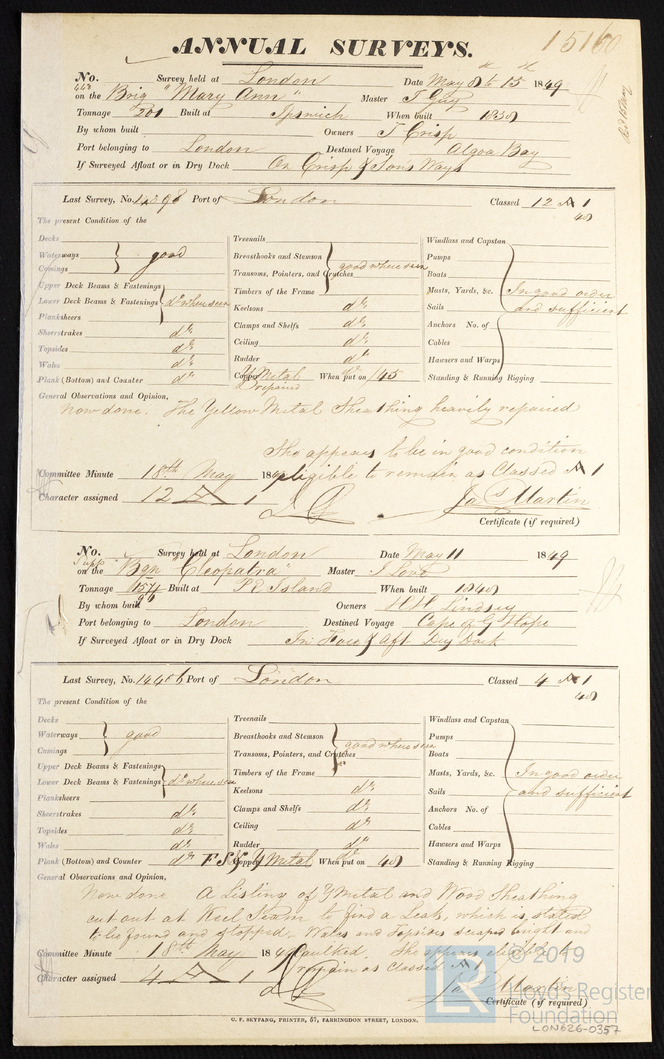 15160
ANNUAL SURVEYS.
No. Survey held at London Date May 8th to 15th 1849
on the Brig "Mary Ann" Master T Guy
Tonnage 201 Built at Ipswich When built 1838
By whom built Owners T Crisp
Port belonging to London Destined Voyage Algoa Bay
If Surveyed Afloat or in Dry Dock On Crisp & Sons Ways
Last Survey, No. Port of London Classed 12 A 1
48
The present Condition of the
Decks
Waterways good
Comings
Upper Deck Beams & Fastenings
Lower Deck Beams & Fastenings do where seen
Planksheers
Sheerstrakes do
Topsides do
Wales do
Plank (Bottom) and Counter do
Treenails
Breasthooks and Stemson good where seen
Transoms, Pointers, and Crutches
Timbers of the Frame
Keelsons do
Clamps and Shelfs do
Ceiling do
Rudder do
Copper Y Metal When put on /45
repaired
Windlass and Capstan
Pumps
Boats
Masts, Yards, &c. In good order
Sails and sufficient
Anchors No. of
Cables
Hawsers and Warps
Standing & Running Rigging
General Observations and Opinion,
Now done. The Yellow Metal Sheathing heavily repaired
She appears to be in good condition
Committee Minute 18th May 1849 eligible to remain as Classed A 1
Character assigned 12 A 1
Jas Martin
Certificate (if required)
No. Survey held at London Date May 11 1849
on the Bgn "Cleopatra" Master I Love
Tonnage Built at P.E. Island When built 1848
By whom built Owners H H Lindsey
Port belonging to London Destined Voyage Cape of G Hope
If Surveyed Afloat or in Dry Dock In Dry Dock
Last Survey, No. 14406 Port of London Classed 4 A 1
48
The present Condition of the
Decks
Waterways good
Comings
Upper Deck Beams & Fastenings
Lower Deck Beams & Fastenings do where seen
Planksheers
Sheerstrakes do
Topsides do
Wales do
Plank (Bottom) and Counter do
Treenails
Breasthooks and Stemson good where seen
Transoms, Pointers, and Crutches
Timbers of the Frame
Keelsons do
Clamps and Shelfs do
Ceiling do
Rudder do
Copper Y Metal When put on 48
Windlass and Capstan
Pumps
Boats
Masts, Yards, &c. In good order
Sails and sufficient
Anchors No. of
Cables
Hawsers and Warps
Standing & Running Rigging
General Observations and Opinion,
Now done A Listing of Y Metal and Wood Sheathing
cut out at Keel Seam to find a Leak, which is stated
to be found and stopped. Wales and Topsides scraped bright and
Committee Minute 18th May 1849 caulked. She appears eligible to
remain as Classed A 1
Character assigned 4 A 1
Jas Martin
Certificate (if required)
C. F. SEYFANG, PRINTER, 57, FARRINGDON STREET, LONDON.
© 2019
LR
Lloyd's Register
Foundation
LON626-0357